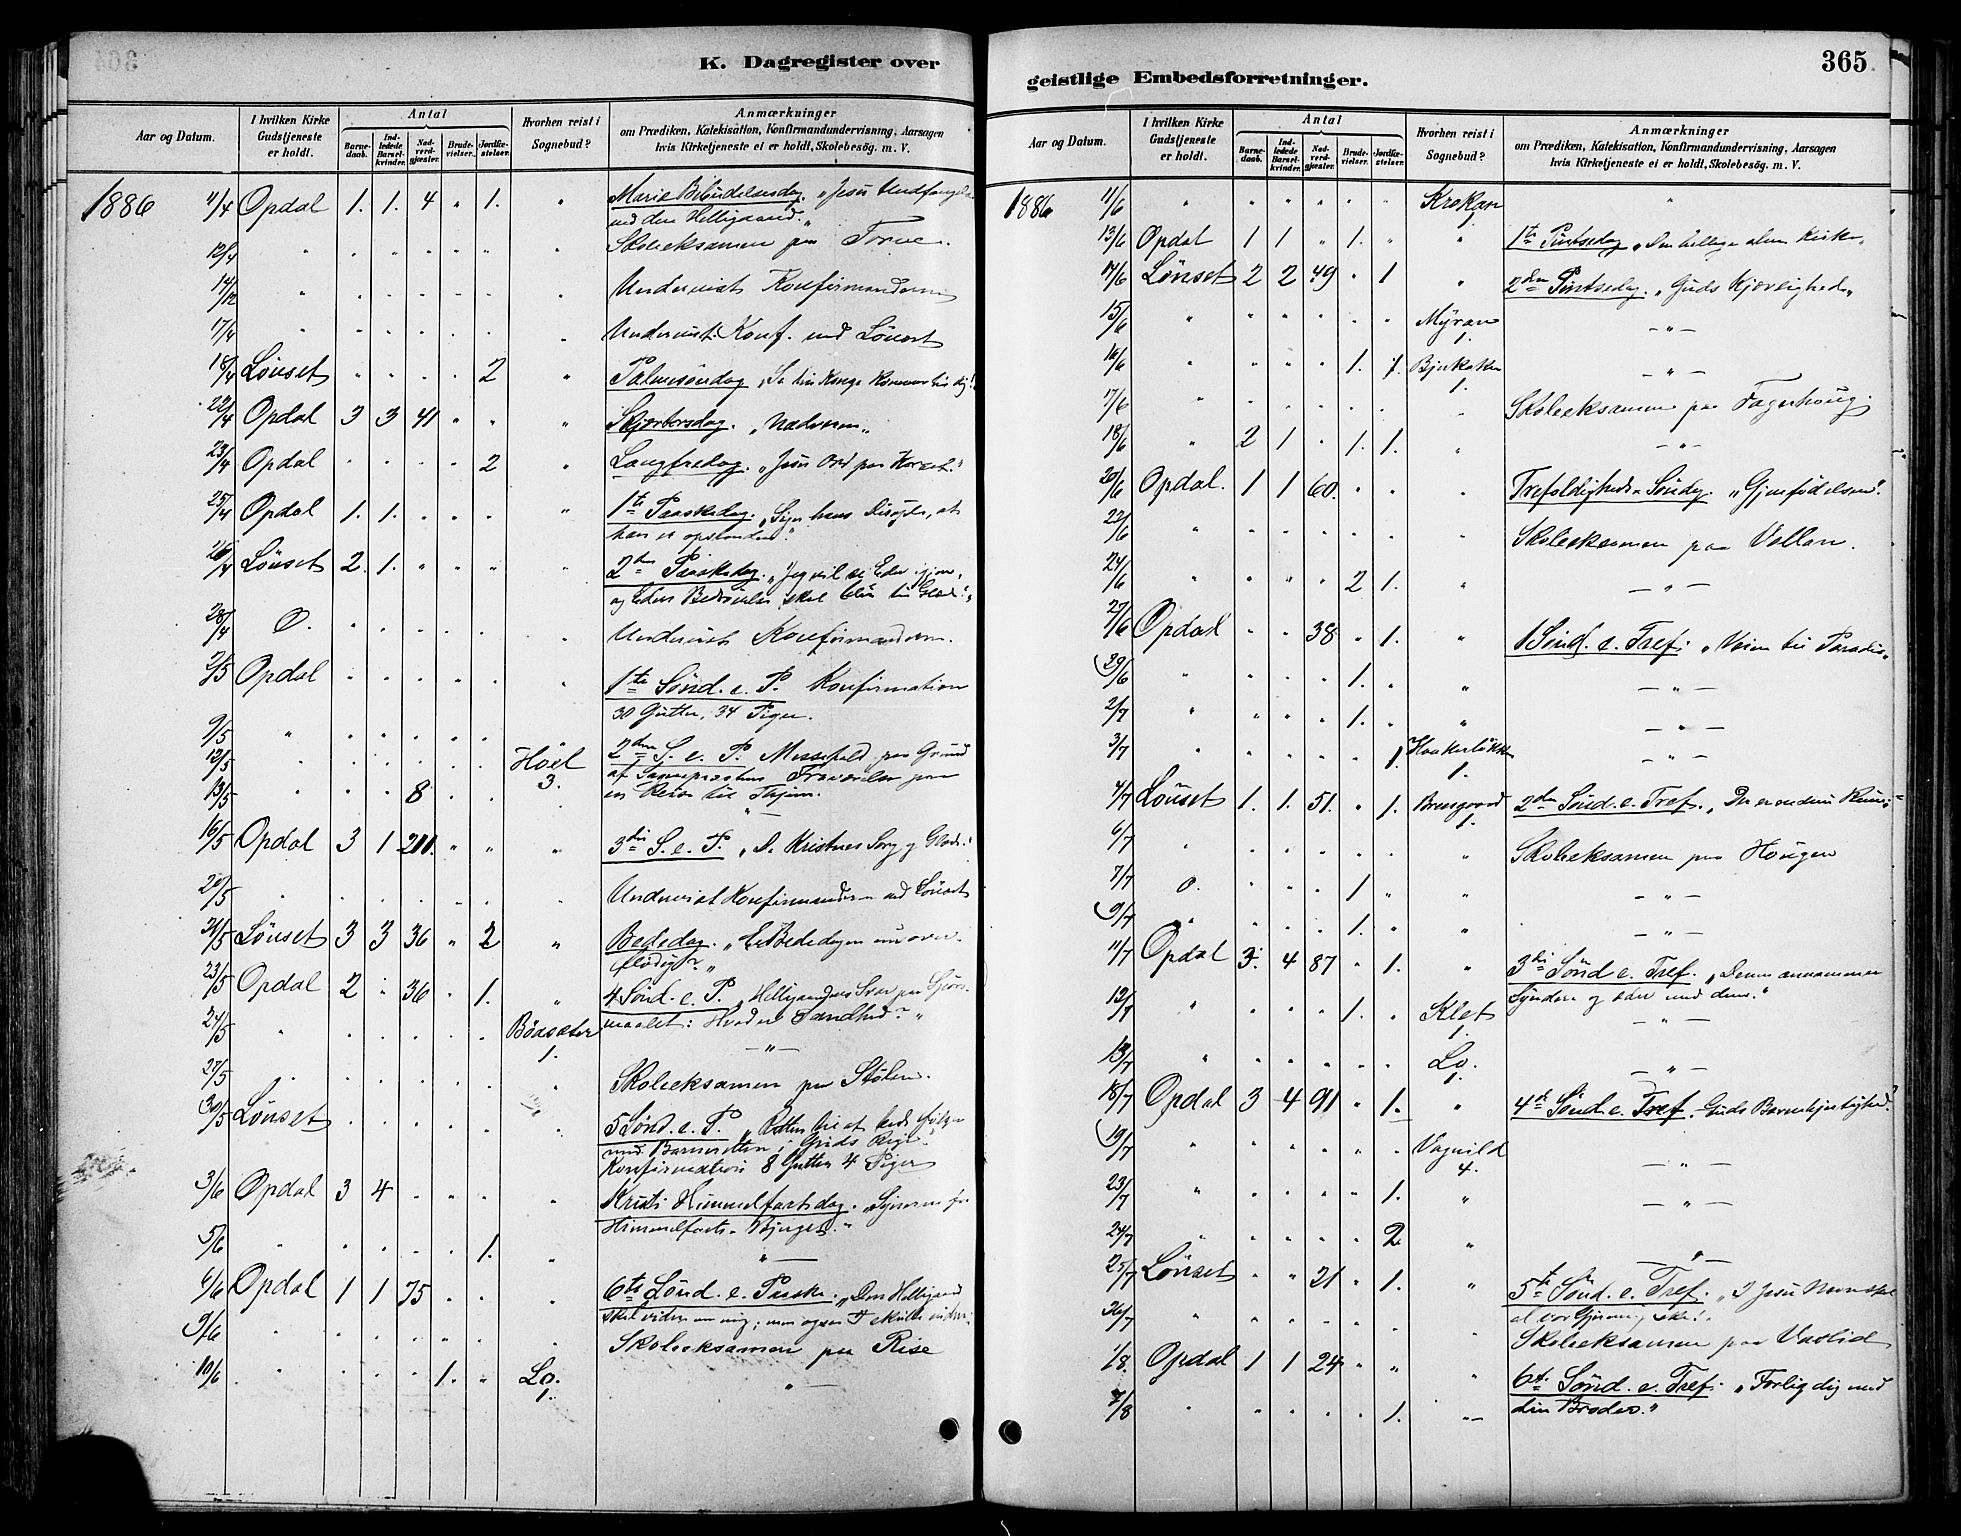 K. Dagregister over
Aar og Datum. I hvilken Kirke Gudstjeneste er holdt. Antal Barne-daab. Ind-ledede Barsel-kvinder. Nad-verd-gjæster. Brude-vielser. Jordfæ-stelser. Hvorhen reist i Sognebud? Anmærkninger
om Prædiken, Katekisation, Konfirmandundervisning, Aarsagen
hvis Kirketjeneste ei er holdt, Skolebesøg. m. V.
1886 11/4 Opdal 1. 1. 4 " 1. " Mariæ Bebudelsesdag. "Jesu Undfangelse
ved den Helligaand."
12/4 " " " " " " " Skoleeksamen paa
14/4 " " " " " " " Underviist Konfirmanderne
17/4 " " " " " " " Underviist Konf. ved Lönset
18/4 Lönset " " " " 2 " Palmesöndag "Se din Konge kommer til dig!"
22/4 Opdal 3 3 41 " " " Skjærtorsdag. "Nadveren"
23/4 Opdal " " " " 2 " Langfredag. "Jesu Ord paa Korset."
25/4 Opdal 1. 1. " " " " 1ste Paaskedag. "Siger hans Disciple, at
han er opstanden."
26/4 Lönset 2. 1. " " " " 2den Paaskedag. "Jeg vil se Eder igjen,
og Eders Bedrövelse skal blive til Glæde."
28/4 O. " " " " " " Underviist Konfirmanderne.
2/5 Opdal " " " " " " 1ste Sönd. e. P. Konfirmation
30 Gutter, 34 Piger.
9/5 " " " " " " 2den S. e. P. Messefald paa Grund
12/5 " " " " " Höel 3. af Sognepræstens Fraværelse paa
13/5 " " " 8 " " " en Reise til Thjem.
16/5 Opdal 3 1 200. " " " 3die S. e. P. "De Kristnes Sorg og Glæde."
20/5 " " " " " " " Underviist Konfirmanderne ved Lönset
21/5 Lönset 3 3 36 " 2 " Bededag. "Er Bededagen nu over-
flödig?"
23/5 Opdal 2 " 36 " 1. " 4 Sönd. e. P. "Helligaandens Svar paa Spörs-
24/5 " " " " " " Böasæter 1. maalet: Hvad er Sandhed?"
27/5 " " " " " " " Skoleeksamen paa Stölen.
30/5 Lönset " " " " " " 5 Sönd. e. P. "Retten til at bede fölger
med Barneretten i Guds Rige"
Konfirmation 8 Gutter 4 Piger
3/6 Opdal 3 4 " " " " Kristi Himmelfartsdag. "Synerne fra
Himmelfarts-Bjerget."
5/6 " " " " " 1. " "
6/6 Opdal 1 1 75 " " " 6te Sönd. e. Paaske. "Den Helligaand
skal vidne om mig; men ogsaa I skulle vidne."
9/6 " " " " " " " Skoleeksamen paa Rise
10/6 " " " " 1. " Lo. 1. "
geistlige Embedsforretninger. 365
Aar og Datum. I hvilken Kirke Gudstjeneste er holdt. Antal Barne-daab. Ind-ledede Barsel-kvinder. Nad-verd-gjæster. Brude-vielser. Jordfæ-stelser. Hvorhen reist i Sognebud? Anmærkninger
om Prædiken, Katekisation, Konfirmandundervisning, Aarsagen
hvis Kirketjeneste ei er holdt, Skolebesøg. m. V.
1886 11/6 " " " " " " Krokan 1. "
13/6 Opdal 1 1 " 1. " " 1ste Pintsedag "Den hellige alm. Kirke"
14/6 Lönset 2 2 49 " 1 " 2den Pintsedag. "Guds Kjærlighed"
15/6 " " " " " " Myran 1. "
16/6 " " " " 1. 1. Bjerkaker 1. "
17/6 " " " " " " " Skoleeksamen paa Fagerhoug.
18/6 " 2 1 " 1. 1. " "
20/6 Opdal. 1 1 60. " " " Trefoldigheds-Söndag. "Gjenfödelsen".
22/6 " " Skoleeksamen paa Vollan.
24/6 " " " " 2 1. " "
27/6 Opdal " " 38 " 1. " 1 Sönd. e. Tref. "Veien til Paradis"
29/6 " " " " 1. " " "
2/7 " " " " 1. " " "
3/7 " " " " " 1. Haakerløkken 1. "
4/7 Lönset 1. 1. 51. " 1. 1. 2den Sönd. e. Tref.
6/7 " " " " " " " Skoleeksamen paa Hougen
7/7 O. " " " 1 " " "
9/7 " " " " 1. " " "
11/7 Opdal 3. 4 87 " 1. " 3die Sönd. e. Tref. "Denne annammer
Syndere og æder med dem."
12/7 " " " " 1. " Klet 1. "
13/7 " " " " " " Lo. 1. "
18/7 Opdal 3 4 91 " 1. " 4de Sönd. e. Tref. Guds Barmhjertighed.
19/7 " " " " " " Vognild 4. "
23/7 " " " " " 1. " "
24/7 " " " " " 2 " "
25/7 Lönset " " 21 " 1. " 5te Sönd. e. Tref. "I Jesu Navn skal
al vor Gjerning ske!"
26/7 " " " " " " " Skoleeksamen paa Vaslid
1/8. Opdal 1 1 24 " " " 6te Sönd. e. Tref. "Forlig dig med
2/8 " " " " " 1. " din Broder."